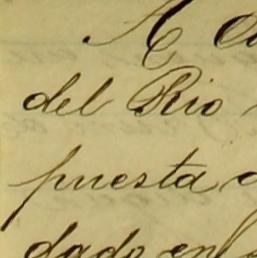 A
del Rio
puesta
dado en